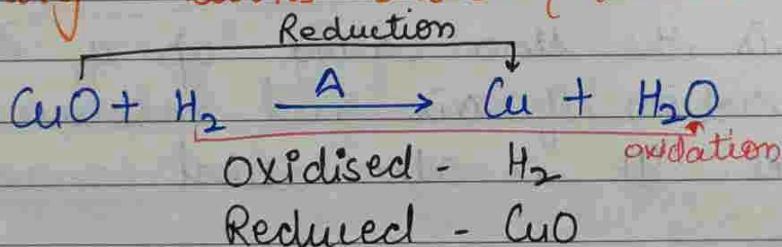 Reduction
CuO + H₂ A→ Cu + H₂O
oxidation
Oxidised - H₂
Reduced - CuO